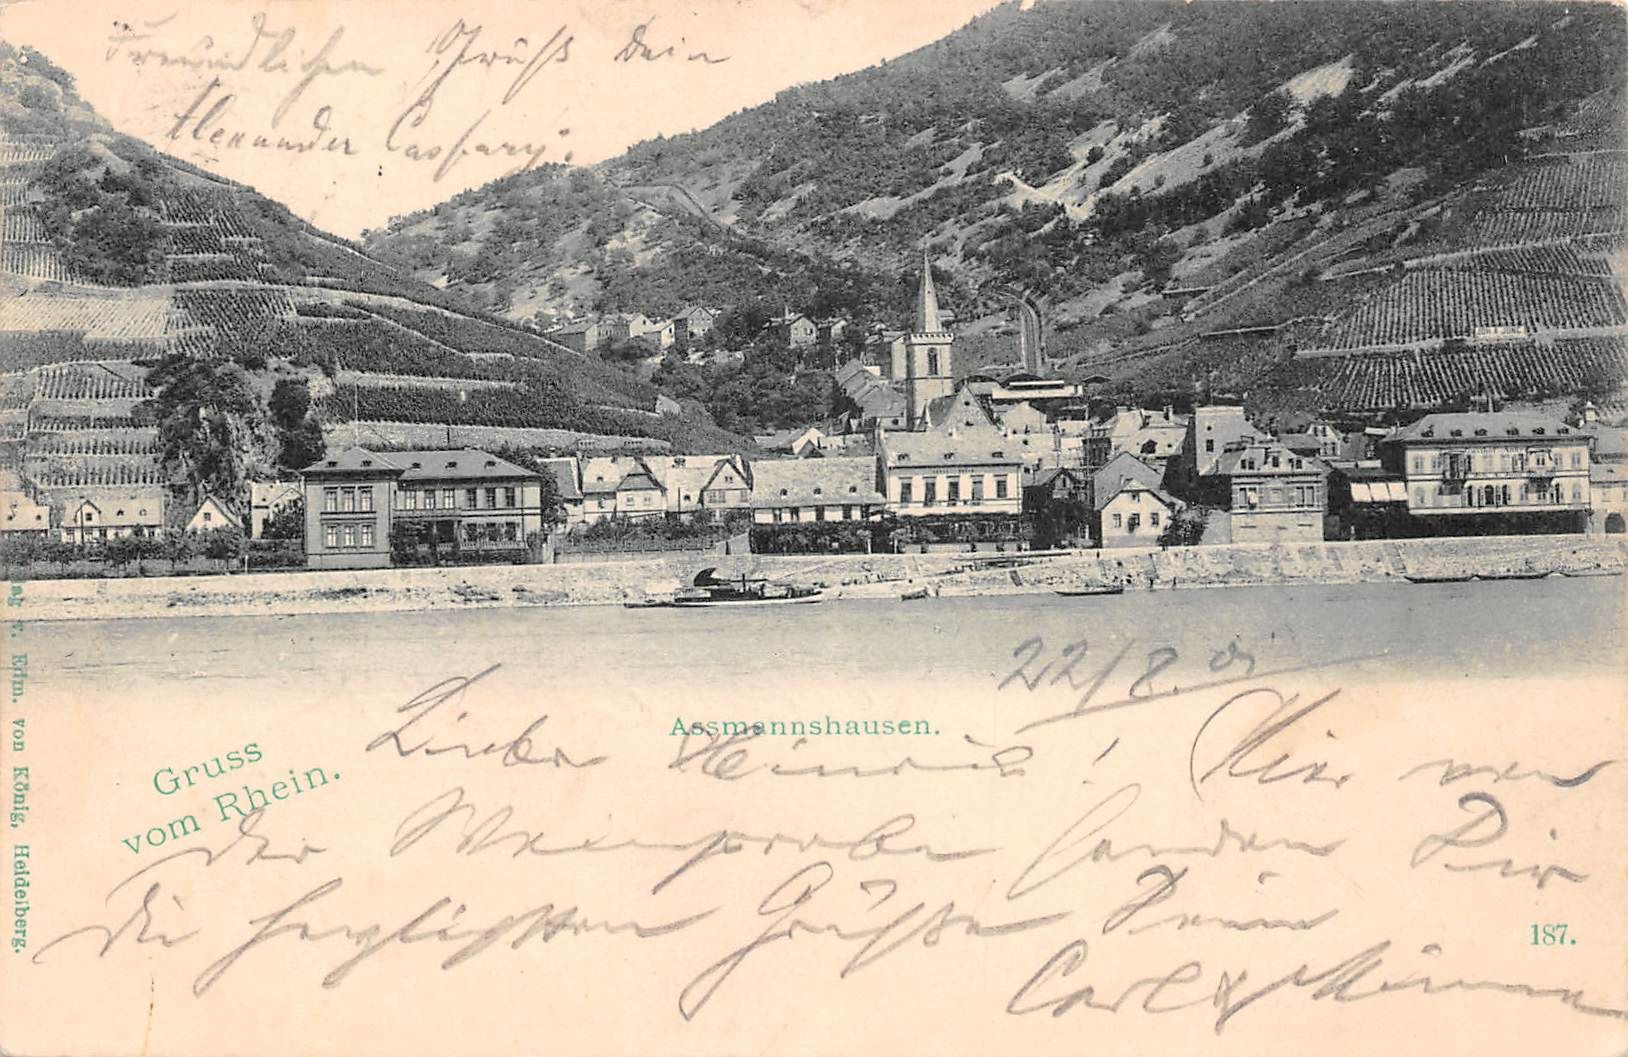 Freundlichen Gruß Dein
Alexander Caspary.
22/8.
Assmannshausen.
Gruss
vom Rhein.
Lieber Heinrich! Hier von
der Weinprobe senden Dir
die herzlichsten Grüße Deine
Carl &
187.
v. Edm. von König, Heidelberg.